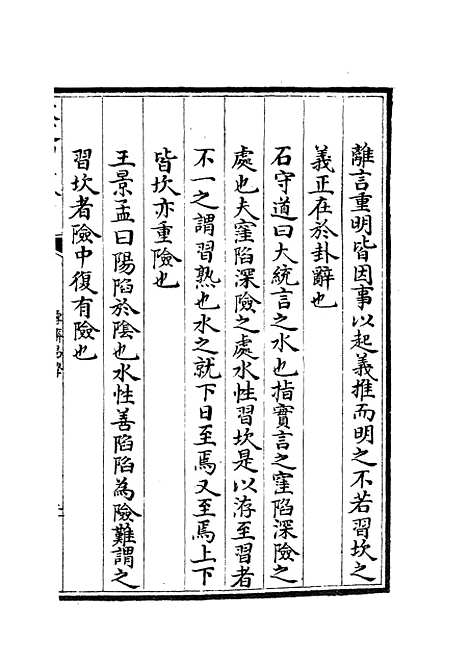 離言重明皆因事以起義推而明之不若習坎之
義正在於卦辭也
石守道曰大統言之水也指實言之窪陷深險之
處也夫窪陷深險之處水性習坎是以洊至習者
不一之謂習熟也水之就下日至焉又至焉上下
皆坎亦重險也
王景孟曰陽陷於陰也水性善陷陷為險難謂之
習坎者險中復有險也